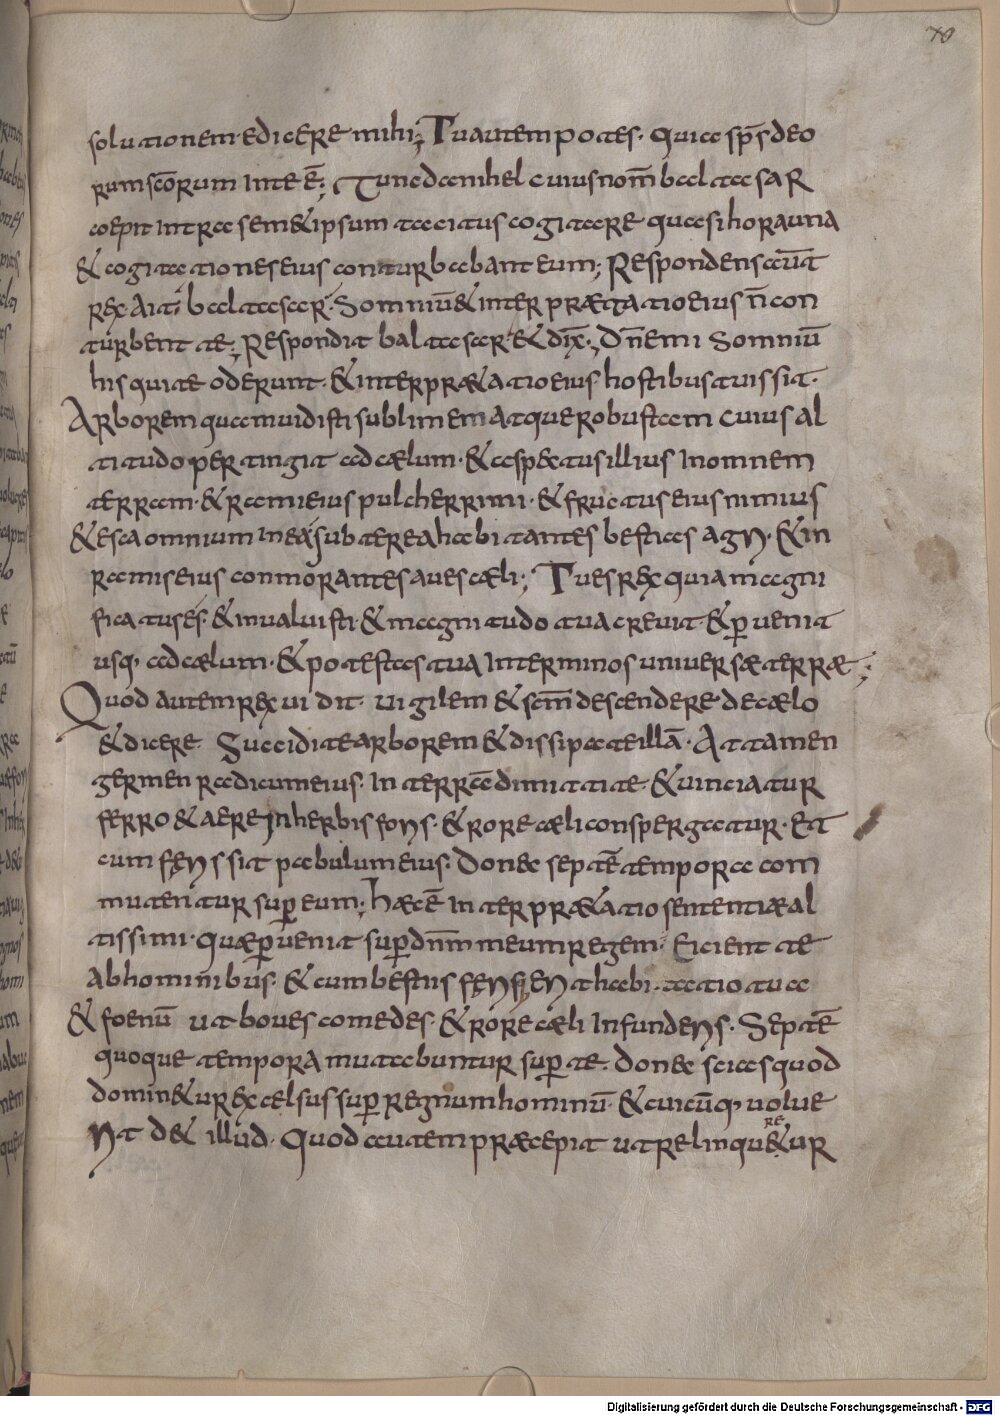 70
solutionem edicere mihi; Tu autem potes· quia sp̄s deo
rum scōrum in te ē; Tunc danihel cuius nom̄ baltasar
coepit intra semet ipsum tacitus cogitare quasi hora una
& cogitationes eius conturbabant eum; Respondens autē
rex ait· baltasar· Somniū & interpretatio eius n̄ con
turbent te; Respondit baltasar & dix̄; Dn̄e mi Somniū
his qui te oderunt· & interpraetatio eius hostibus tuis sit·
Arborem quam uidisti sublimem atque robustam cuius al
titudo pertingit ad caelum· & aspectus illius in omnem
terram· & rami eius pulcherrimi· & fructus eius nimius
& esca omnium in ea· subter ea habitantes bestias agri· & in
ramis eius conmorantes aues caeli; Tu es rex quia magni
ficatus es· & inualuisti· & magnitudo tua creuit & peruenit
usq; ad caelum· & potestas tua in terminos uniuersae terrae;
Quod autem rex uidit uigilem & scm̄ descendere de caelo
& dicere· Succidite arborem & dissipate illā· Attamen
germen radicum eius· in terra dimittite· & uinciatur
ferro & aere in herbis foris· & rore caeli conspergatur· Et
cum feris sit pabulum eius· donec septē tempora com
mutentur super eum; haec ē interpraetatio sententiae al
tissimi· quae peruenit super dn̄m meum regem· Eicient te
ab hominibus· & cum bestiis feris erit habitatio tua
& foenū ut bos comedes· & rore caeli infunderis· Septē
quoque tempora mutabuntur super te· donec scias quod
dominetur excelsus super regnum hominū· & cuicūq; uolue
rit det illud· Quod autem praecepit ut relinqueretur
Digitalisierung gefördert durch die Deutsche Forschungsgemeinschaft - DFG